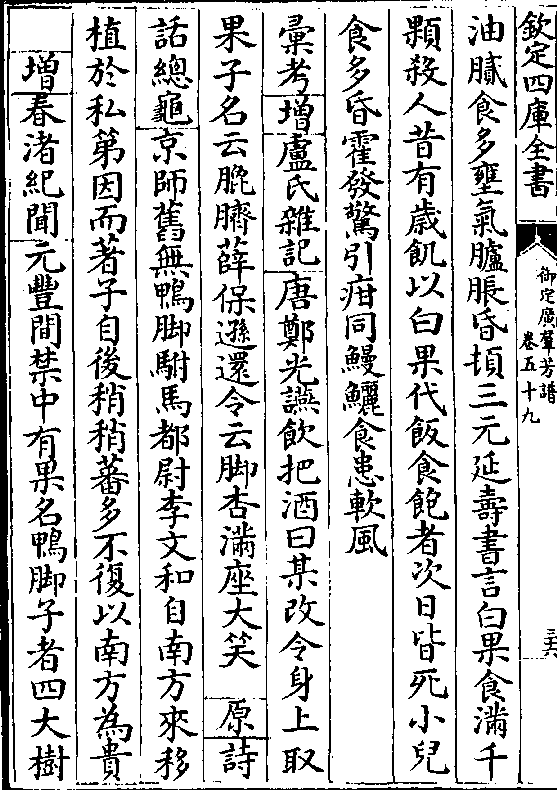 欽定四庫全書
御定廣羣芳譜
卷五十九
三六
油膩食多壅氣臚脹昏頓三元延壽書言白果食滿千
顆殺人昔有歲飢以白果代飯食飽者次日皆死小兒
食多昏霍發驚引疳同鰻鱺食患軟風
彙考增盧氏雜記唐鄭光讌飲把酒曰某改令身上取
果子名云膍臍薛保遜還令云脚杏滿座大笑 原詩
話總龜京師舊無鴨脚駙馬都尉李文和自南方來移
植於私第因而著子自後稍稍蕃多不復以南方為貴
增春渚紀聞元豐間禁中有果名鴨脚子者四大樹